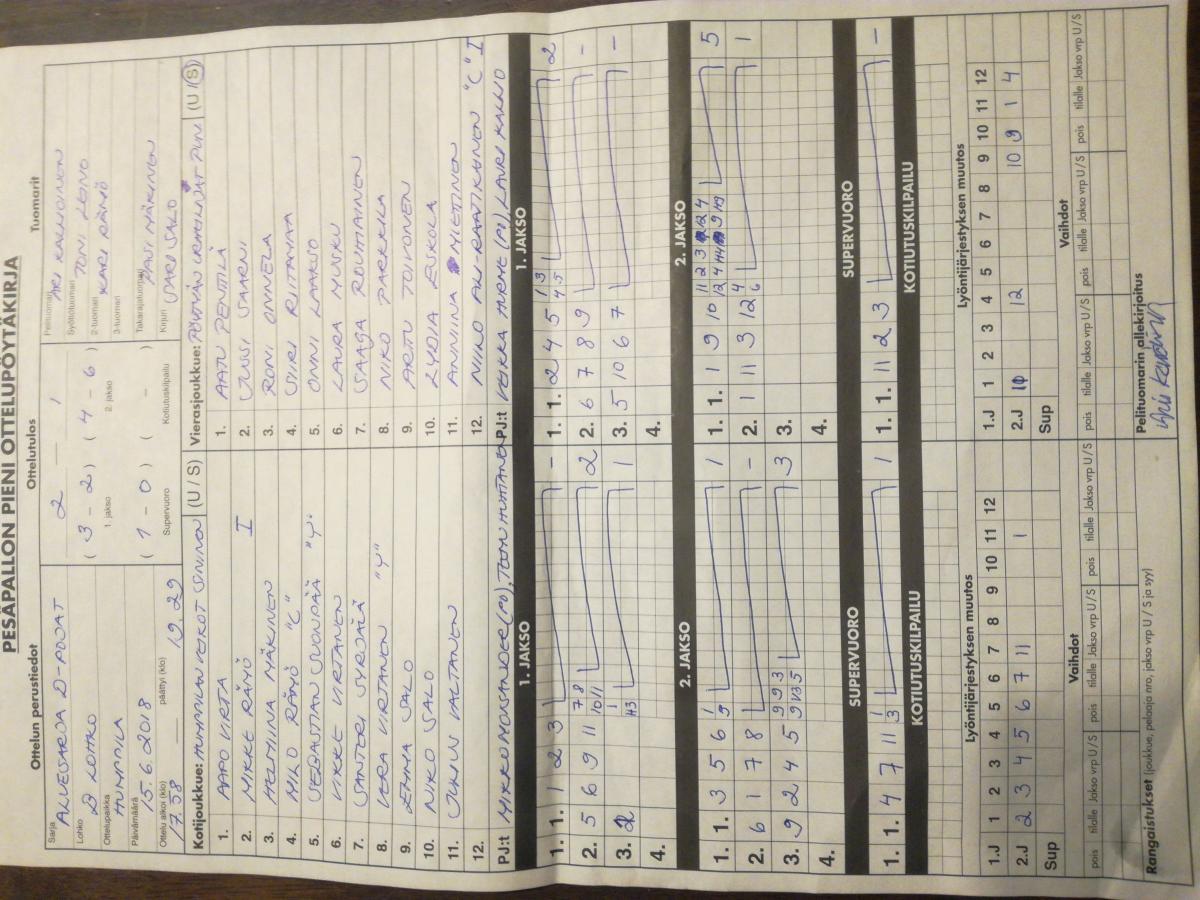 PESÄPALLON PIENI OTTELUPÖYTÄKIRJA
Ottelun perustiedot
Sarja
ALUESARJA D-POJAT
Lohko
D LOHKO
Ottelupaikka
HUMPPILA
Päivämäärä
15.6.2018
Ottelu alkoi (klo) 17.58 päättyi (klo) 19.29
Ottelutulos
2 - 1
( 3 - 2 ) ( 4 - 6 )
1. jakso 2. jakso
( 1 - 0 ) ( - )
Supervuoro Kotiutuskilpailu
Tuomarit
Pelituomari
Syöttötuomari TONI LEINO
2-tuomari KARI RÄMÖ
3-tuomari
Takarajatuomari PASI MÄKINEN
Kirjuri SARI SALO
Kotijoukkue: HUMPPILAN VEIKOT SININEN (U / S)
1. AAPO VIRTA
2. MIKKE RÄMÖ I
3. HELMIINA MÄKINEN
4. MILO RÄMÖ "C"
5. SEBASTIAN SUONPÄÄ "Y"
6. VIKKE VIRTANEN
7. SANTERI SYRJÄLÄ
8. VERA VIRTANEN "Y"
9. EMMA SALO
10. NIKO SALO
11. JULIUS VALTANEN
12.
PJ:t MIKKO
Vierasjoukkue: PÖYTYÄN URHEILIJAT PUNI (U / S)
1. AATU PENTTILÄ
2. JUSSI SAARNI
3. RONI ONNELA
4. SIIRI RIITAMAA
5. ONNI LAAKSO
6. LAURA MUSKU
7. SAAGA ROUHIAINEN
8. NIKO PARKKA
9. ARTU TOIVONEN
10. LYDIA ESKOLA
11. ANNIINA MIETTINEN
12. NIILO ALI-RAATIKAINEN "C" I
PJ:t VEIKKA HURME (PJ), LAURI KALLIO
1. JAKSO
1. 1. 1 2 3 -
2. 5 6 9 11 7 8 10 11 2
3. 2 1 1
4.
1. JAKSO
1. 1. 2 4 5 1 3 4 5 2
2. 6 7 8 9 -
3. 5 10 6 7 -
4.
2. JAKSO
1. 1. 3 5 6 1 9 1
2. 6 1 7 8 -
3. 9 2 4 5 9 9 3 3
4.
2. JAKSO
1. 1. 1 9 10 11 2 3 5
2. 1 11 3 12 4 6 1
3.
4.
SUPERVUORO
1. 1. 4 7 11 3 1 3 1
SUPERVUORO
1. 1. 11 2 3 -
KOTIUTUSKILPAILU
KOTIUTUSKILPAILU
Lyöntijärjestyksen muutos
1 2 3 4 5 6 7 8 9 10 11 12
1.J
2.J 2 3 4 5 6 7 11 1
Sup
Lyöntijärjestyksen muutos
1 2 3 4 5 6 7 8 9 10 11 12
1.J
2.J 12 10 9 1 4
Sup
Vaihdot
pois tilalle Jakso vrp U / S pois tilalle Jakso vrp U / S pois tilalle Jakso vrp U / S
Vaihdot
pois tilalle Jakso vrp U / S pois tilalle Jakso vrp U / S pois tilalle Jakso vrp U / S
Rangaistukset (joukkue, pelaaja nro, jakso vrp U / S ja syy)
Pelituomarin allekirjoitus